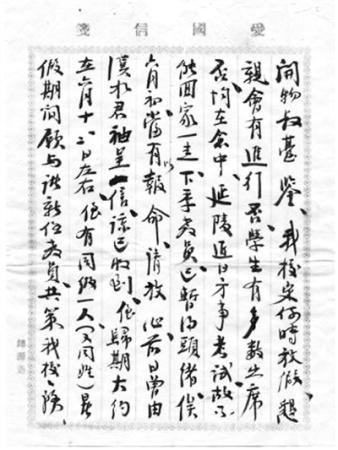 愛國信箋
開物叔臺鑒、我校定何時放假、懇
親會有進行否、學生有多數出席
否、均在念中、延陵近日方事考試、故不
能回家一走、下季教員已暫得頭緒、俟
六月初當有以報命、請放心、前日曾由
君袖呈一信、諒已收到、侄歸期大約
在六月十二日左右、侄有同級一人(又同姓)暑
假期間願与諸新任教員、共策我校、餘